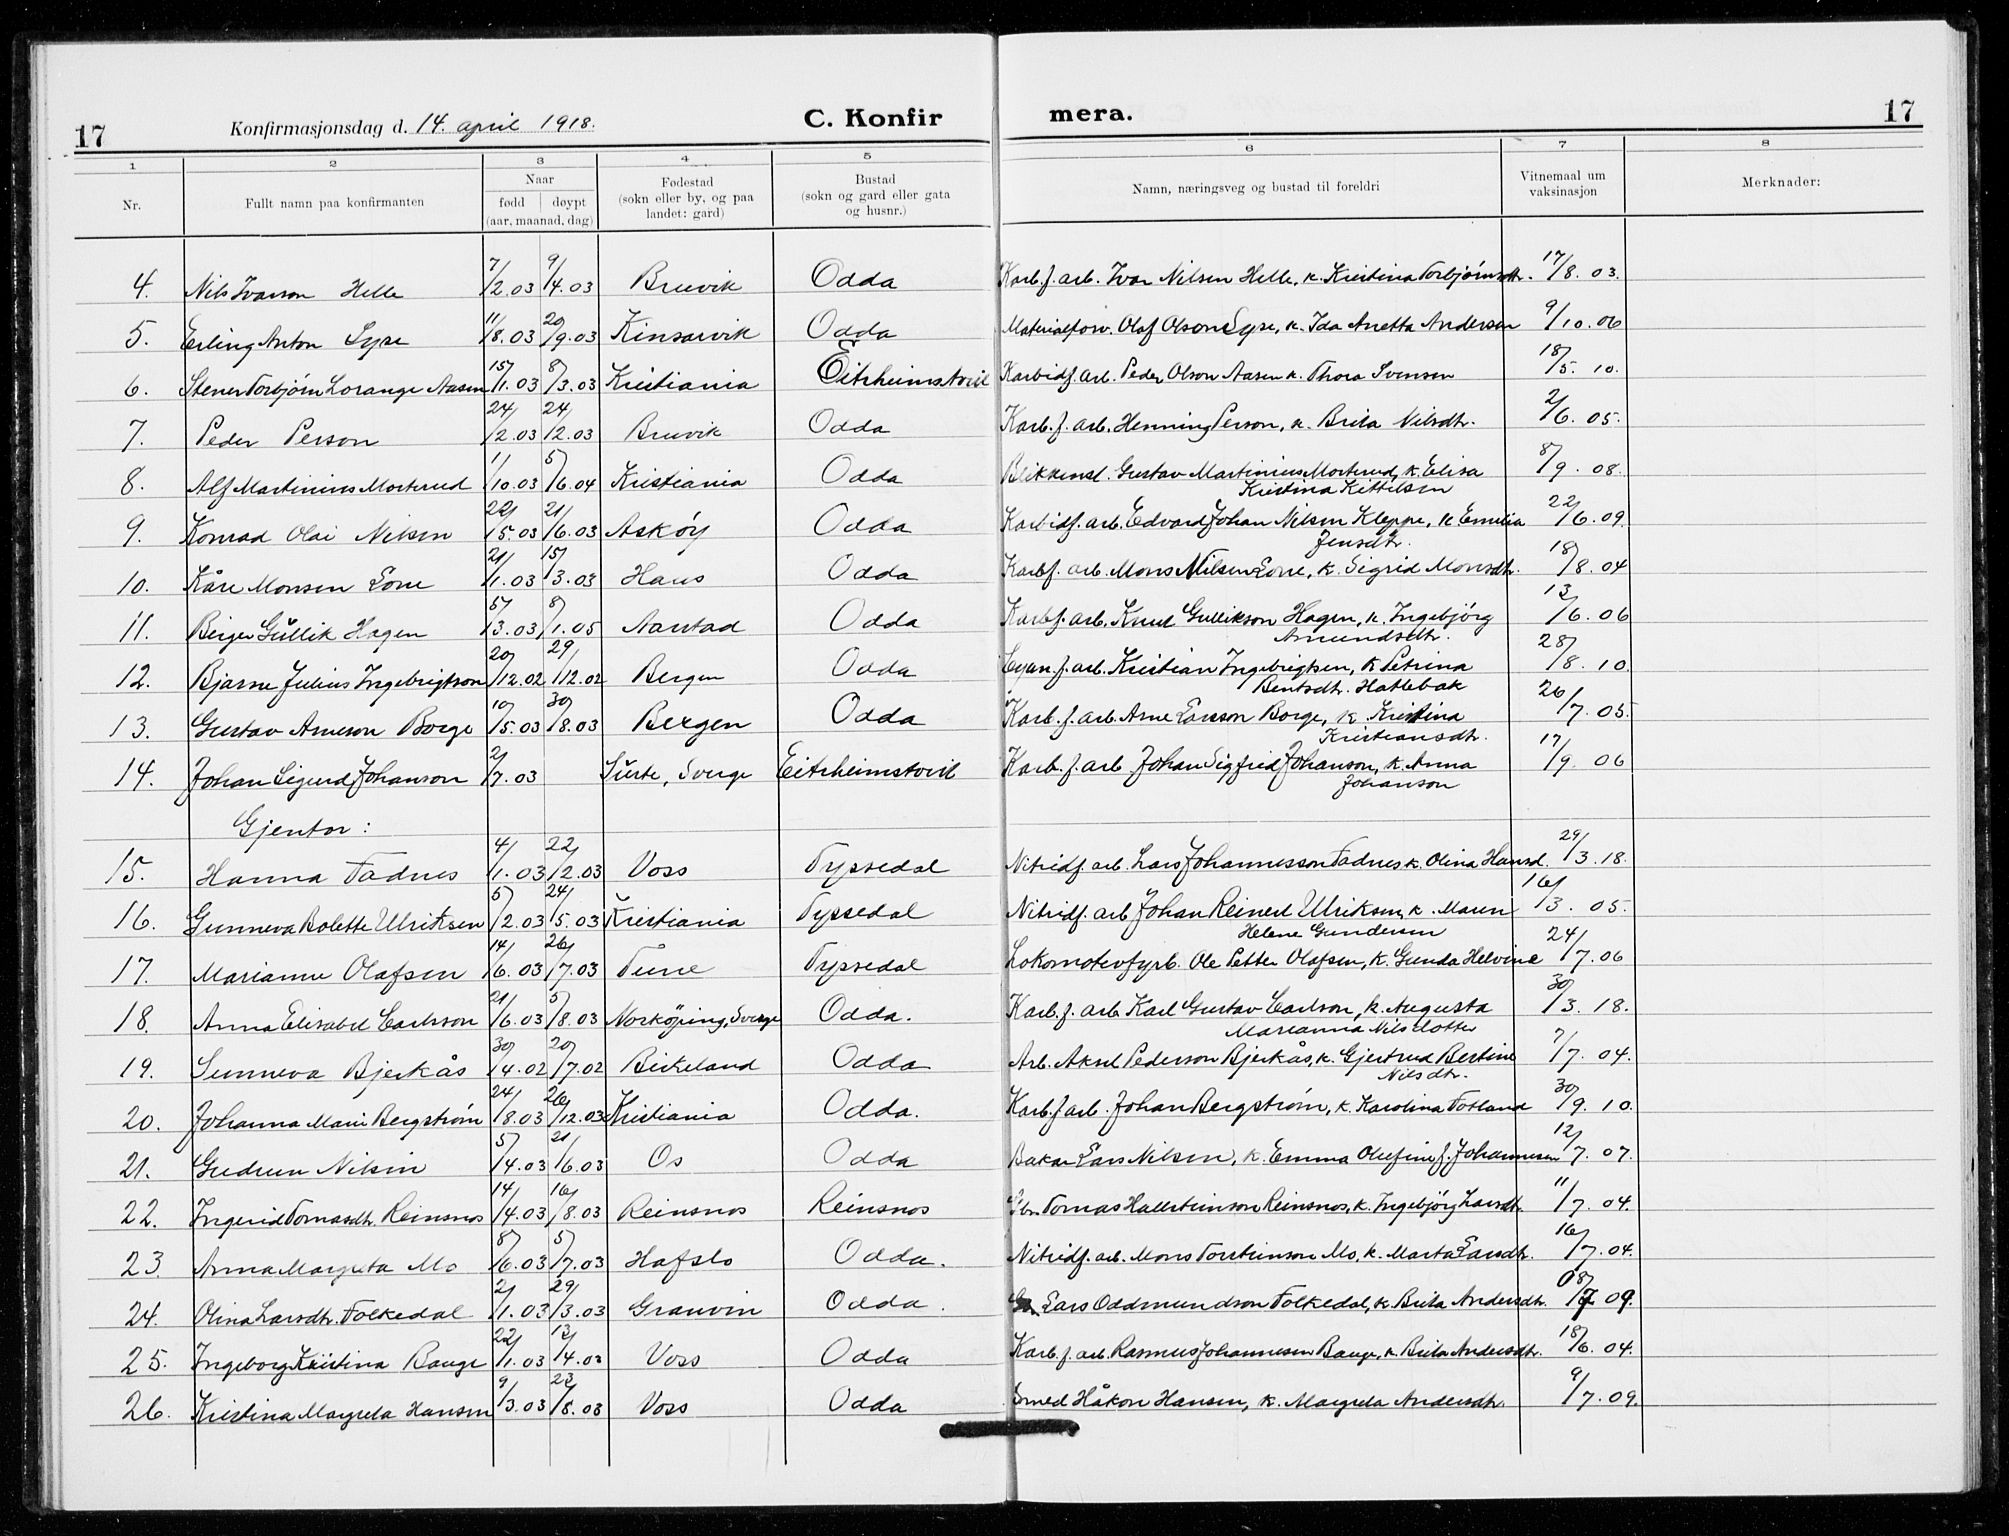 17 Konfirmasjonsdag d. 14. april 1918. C. Konfir mera. 17
1 2 3 4 5 6 7 8
Nr. Fullt namn paa konfirmanten Naar fødd døypt (aar, maanad, dag) Fødestad (sokn eller by, og paa landet: gard) Bustad (sokn og gard eller gata og husnr.) Namn, næringsveg og bustad til foreldri Vitnemaal um vaksinasjon Merknader:
4. Nils Ivarson Helle 7/2.03 9/4.03 Bruvik Odda Karb.f.arb. Ivar Nilsen Helle, k. Kristina Torbjørnsdtr. 17/8.03.
5. Erling Anton Syse 11/8.03 20/9.03 Kinsarvik Odda Materialforv. Olaf Olson Syse, k. Ida Anetta Andersen 9/10.06
6. Stener Torbjörn Lorange Aasen 15/1.03 8/3.03 Kristiania Eitrheimstveit Karbidf. arb. Peder Olson Aasen k. Thora Svensen 18/5. 10.
7. Peder Person 24/2.03 24/2.03 Bruvik Odda Karb.f. arb. Henning Person, k. Brita Nilsdtr. 2/6.05.
8. Alf Martinius Morterud 1/10.03 5/6.04 Kristiania Odda Blikkensl. Gustav Martinius Morterud, k. Elisa
Kristina Kittilsen 8/9.08.
9. Konrad Olai Nilsen 22/5.03 21/6.03 Asköy Odda Karbidf. arb. Edvard Johan Nilsen Kleppe, k. Emilia
Jensdtr. 22/6.09.
10. Kåre Monsen Lone 21/1.03 15/3.03 Haus Odda Karbf. arb. Mons Nilsen Lone, k. Sigrid Monsdtr. 18/8.04
11. Birger Gullik Hagen 5/3.03 8/1.05 Aarstad Odda Karbf. arb. Knut Gullikson Hagen, k. Ingebjörg
Amundsdtr. 13/6.06
12. Bjarne Julius Ingebrigtson 20/12.02 29/12.02 Bergen Odda Cyan.f.arb. Kristian Ingebrigtsen, k. Petrina
Bentsdtr. Hatlebak 28/8.10.
13. Gustav Arneson Borge 10/5.03 30/8.03 Bergen Odda Karb.f.arb. Arne Larsson Borge, k. Kristina
Kristiansdtr. 26/7.05.
14. Johan Sigurd Johanson 2/7.03 Surte, Sverge Eitrheimstveit Karb.f.arb. Johan Sigfrid Johanson, k. Anna
Johanson 17/9.06
Gjentor:
15. Hanna Tadnes 4/1.03 22/2.03 Voss Tyssedal Nitridf. arb. Lars Johannesson Tadnes k. Olina Hansd. 29/3.18.
16. Gunneva Bolette Ulriksen 5/2.03 24/5.03 Kristiania Tyssedal Nitridf. arb Johan Reinert Ulriksen, k. Maren
Helene Gundersen 16/3.05.
17. Marianne Olafsen 14/6.03 26/7.03 Tune Tyssedal Lokomotivfyrb. Ole Petter Olafsen, k. Gunda Helvine 24/7.06
18. Anna Elisabet Carlsson 21/6.03 5/8.03 Norköping, Sverge Odda. Karb.f. arb. Karl Gustav Carlson, k. Augusta
Marianna Nilsdotter 30/3.18.
19. Sunneva Bjerkås 30/4.02 20/7.02 Birkeland Odda Arb. Aksel Pederson Bjerkås, k. Gjertrud Bertine
Nilsdtr. 7/7.04.
20. Johanna Marie Bergström 24/8.03 26/12.03 Kristiania Odda. Karb.f.arb. Johan Bergström, k. Karolina Totland 30/9.10.
21. Gudrun Nilsen 5/4.03 21/6.03 Os Odda Bakar Lars Nilsen, k. Emma Olufine f. Johannesen 12/7.07.
22. Ingerid Tomasdtr. Reinsnos 14/4.03 16/8.03 Reinsnos Reinsnos Gbr. Tomas Hallsteinson Reinsnos, k. Ingebjörg Larsdtr. 11/7.04.
23. Anna Margreta Mo 8/6.03 5/7.03 Hafslo Odda. Nitridf. arb. Mons Torsteinson Mo, k. Marta Larsdtr. 16/7.04.
24. Olina Larsdtr. Folkedal 2/1.03 29/3.03 Granvin Odda. Lars Oddmundson Folkedal, k. Brita Andersdtr. 7.09.
25. Ingeborg Kristina Bauge 22/1.03 13/4.03 Voss Odda Karb.f.arb. Rasmus Johannesen Bauge, k. Brita Andersdtr. 18/6.04.
26. Kristina Margreta Hansen 9/3.03 23/8.03 Voss Odda Smed Håkon Hansen, k. Margreta Andersdtr. 9/7.09.